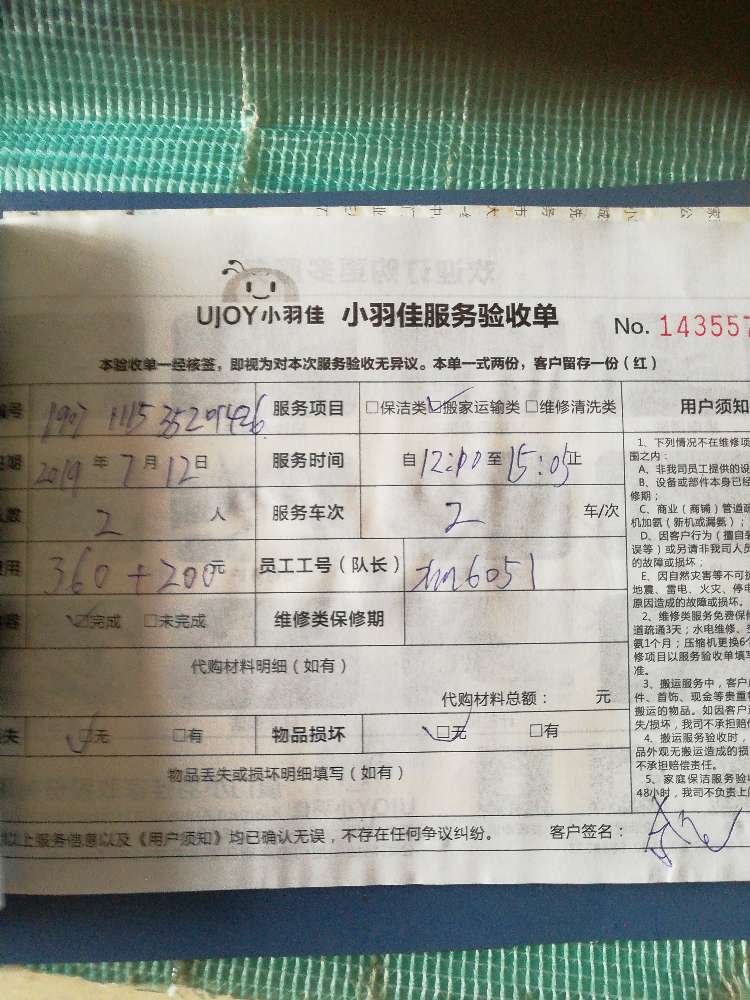 UJOY小羽佳 小羽佳服务验收单
No. 143557
本验收单一经核签，即视为对本次服务验收无异议。本单一式两份，客户留存一份（红）
编号 服务项目 □保洁类 ☑搬家运输类 □维修清洗类
日期 2019 年 7 月 12 日 服务时间 自 12:00 至 15:05 止
人数 2 人 服务车次 2 车/次
费用 360 + 200 元 员工工号（队长） 6051
内容 ☑完成 □未完成 维修类保修期
代购材料明细（如有）
代购材料总额： 元
失 ☑无 □有 物品损坏 ☑无 □有
物品丢失或损坏明细填写（如有）
以上服务信息以及《用户须知》均已确认无误，不存在任何争议纠纷。 客户签名：
用户须知
1、下列情况不在维修项
围之内：
A、非我司员工提供的设
B、设备或部件本身已经
修期；
C、商业（商铺）管道疏
机加氨（新机或漏氨）；
D、因客户行为（擅自
误等）或另请非我司人员
的故障或损坏；
E、因自然灾害等不可
地震、雷电、火灾、停电
原因造成的故障或损坏。
2、维修类服务免费保修
道疏通3天；水电维修、
氨1个月；压缩机更换6个
修项目以服务验收单填写
准。
3、搬运服务中，客户
件、首饰、现金等贵重
搬运的物品。如因客户
失/损坏，我司不承担赔
4、搬运服务验收时，
品外观无搬运造成的损
不承担赔偿责任。
5、家庭保洁服务验收
48小时，我司不负责上